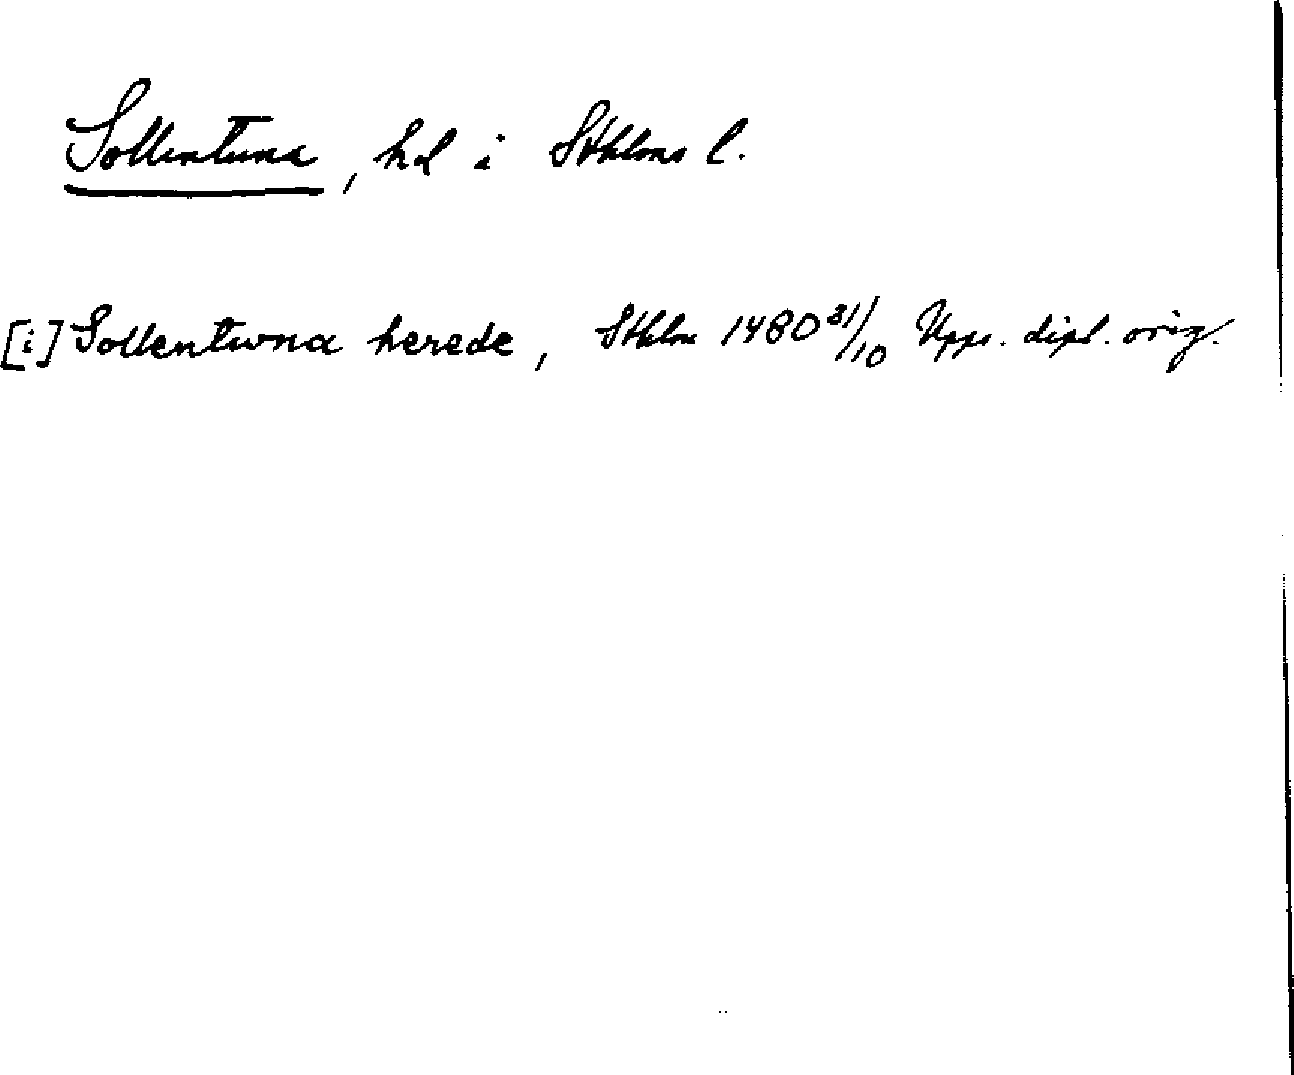 Sollentuna, hd i Sthlms l.
[i] Sollentwna herede, Sthlm 1480 31/10 Upps. dipl. orig.